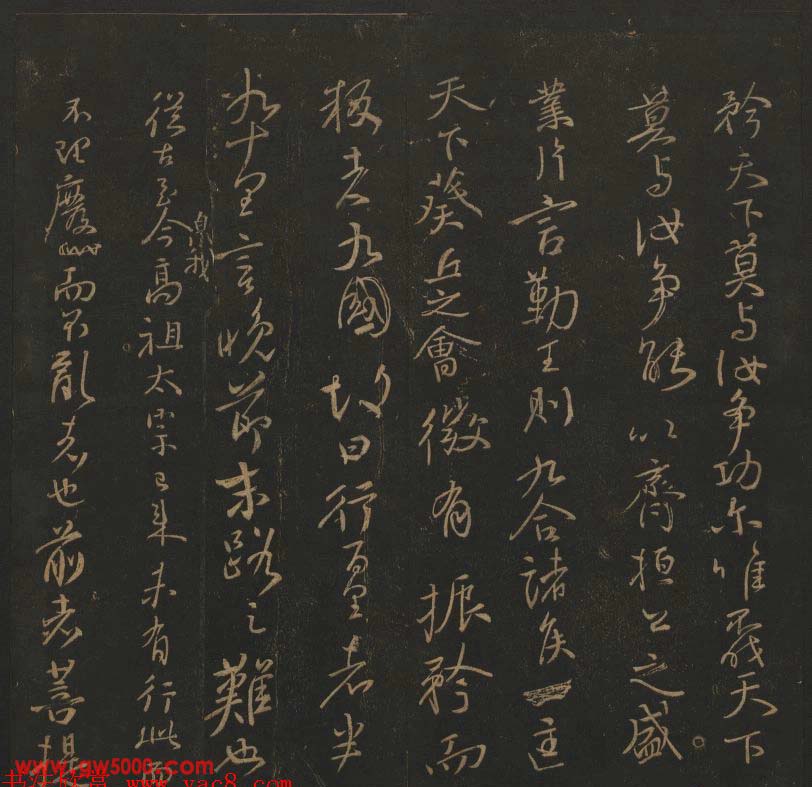 矜天下莫与汝争功尔唯不伐天下
莫与汝争能以齊桓公之盛
業片言勤王則九合諸侯一匡
天下葵丘之會微有振矜而
叛者九國故曰行百里者半
九十里言晚節末路之難也
從古至今泉我高祖太宗已来未有行此而
不理廢而不亂者也前者菩提
www.gw5000.com
书法欣赏 www.yac8.com